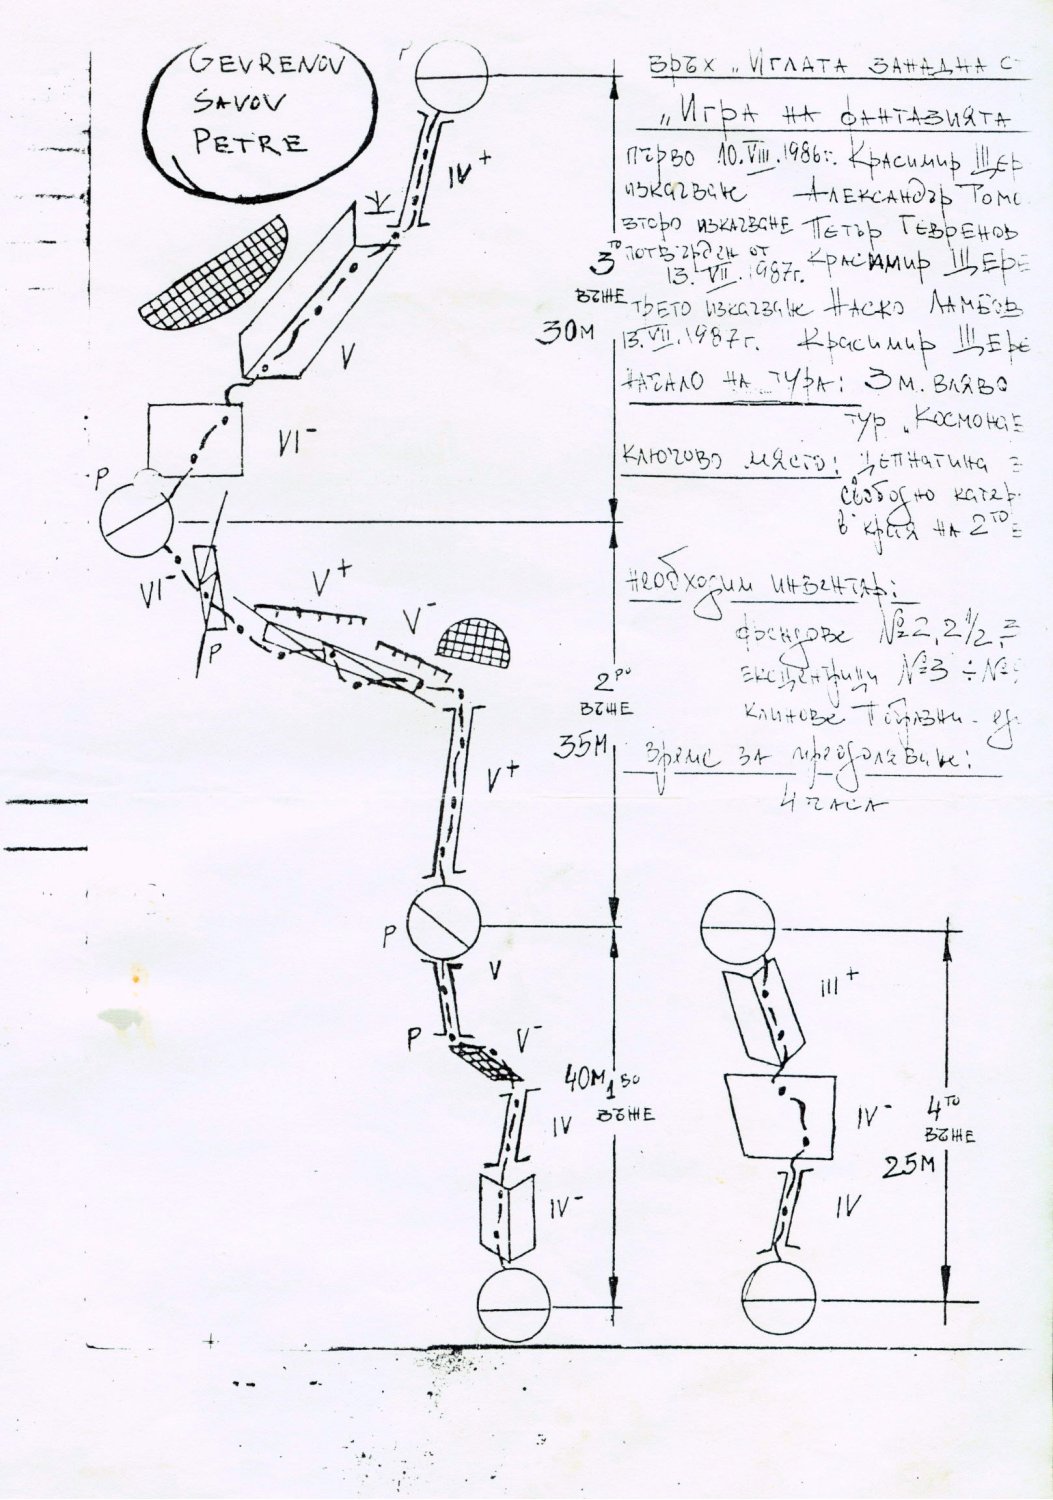 GEVRENOV
SAVOV
PETRE
ВРЪХ „ИГЛАТА ЗАПАДНА С
„Игра на фантазията
първо 10.VIII.1986г. Красимир Щер
изкачване Александър Томо
второ изкачване Петър Гевренов
потвърден от Красимир Щере
13.VII.1987г.
трето изкачване Наско Ламбов
13.VII.1987г. Красимир Щере
начало на тура: 3 м. вляво
тур „Космонав
ключово място: цепнатина
свободно катер
в края на 2ТО
необходим инвентар:
френдове №2, 2 1/2,
ексцентрици №3 ÷ №
клинове Т образни -
време за преодоляване:
4 часа
P
IV+
3ТО
ВЪЖЕ
30М
V
VI-
P
VI-
V+
V-
P
2РО
ВЪЖЕ
35М
V+
P
V
P
V-
40М
1ВО
ВЪЖЕ
IV
IV-
III+
IV-
4ТО
ВЪЖЕ
25М
IV